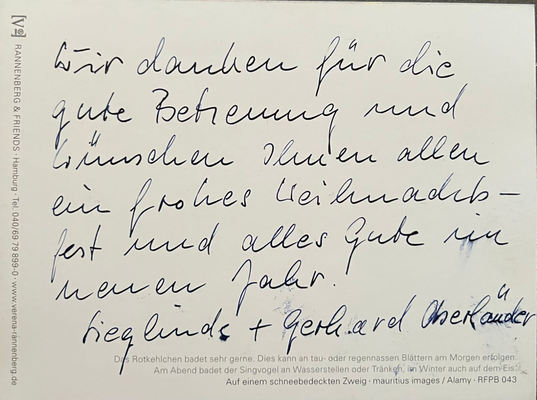 Wir danken für die
gute Betreuung und
wünschen Ihnen allen
ein frohes Weihnachts-
fest und alles Gute im
neuen Jahr.
Sieglinde + Gerhard Oberländer
Das Rotkehlchen badet sehr gerne. Dies kann an tau- oder regennassen Blättern am Morgen erfolgen.
Am Abend badet der Singvogel an Wasserstellen oder Tränken, im Winter auch auf dem Eis.
Auf einem schneebedeckten Zweig · mauritius images / Alamy · RFPB 043
RANNENBERG & FRIENDS · Hamburg · Tel. 040/69 79 899-0 · www.verena-rannenberg.de